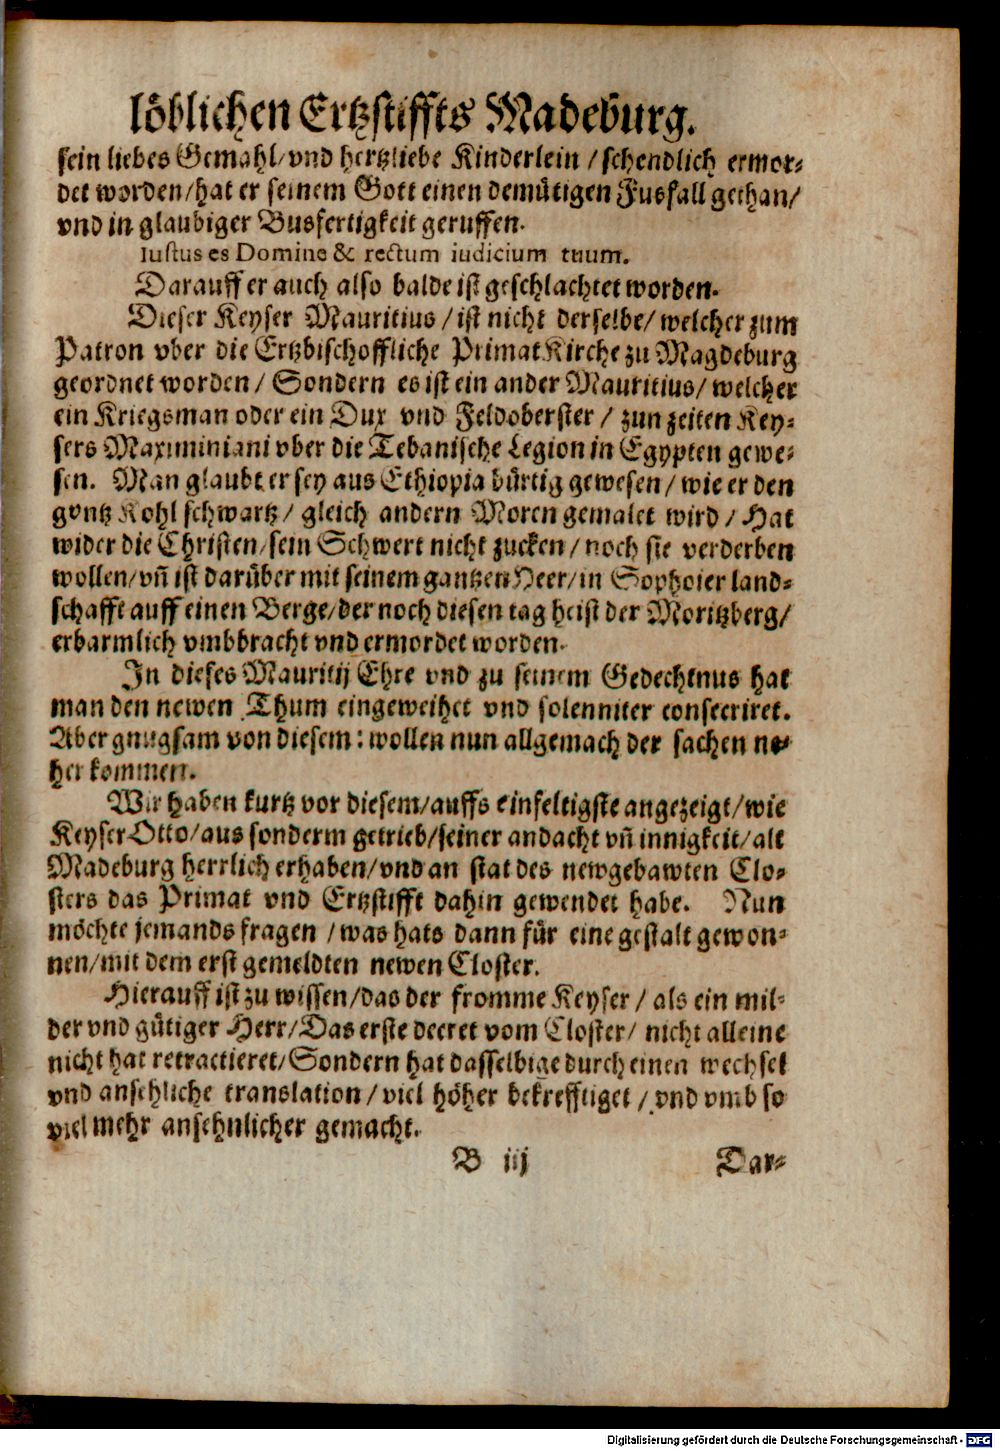 löblichen Ertzstiffts Madeburg.
sein liebes Gemahl/vnd hertzliebe Kinderlein /schendlich ermor-
det worden/hat er seinem Gott einen demütigen Fusfall gethan/
vnd in glaubiger Busfertigkeit geruffen.
Iustus es Domine & rectum iudicium tuum.
Darauff er auch also balde ist geschlachtet worden.
Dieser Keyser Mauritius/ist nicht derselbe/welcher zum
Patron vber die Ertzbischoffliche Primat Kirche zu Magdeburg
geordnet worden/ Sondern es ist ein ander Mauritius/ welcher
ein Kriegsman oder ein Dux vnd Feldoberster / zun zeiten Key-
sers Maximiniani vber die Tebanische Legion in Egypten gewe-
sen. Man glaubt er sey aus Ethiopia bürtig gewesen/wie er den
gantz Kohl schwartz/ gleich andern Moren gemalet wird/ Hat
wider die Christen/sein Schwert nicht zucken/noch sie verderben
wollen/vñ ist darüber mit seinem gantzen Heer/in Sophoier land-
schafft auff einen Berge/der noch diesen tag heist der Moritzberg/
erbarmlich vmbbracht vnd ermordet worden.
In dieses Mauritij Ehre vnd zu seinem Gedechtnus hat
man den newen Thum eingeweihet vnd solenniter consecriret.
Aber gnugsam von diesem: wollen nun allgemach der sachen ne-
her kommen.
Wir haben kurtz vor diesem/auffs einfeltigste angezeigt/wie
Keyser Otto/aus sonderm getrieb/seiner andacht vñ innigkeit/alt
Madeburg herrlich erhaben/vnd an stat des newgebawten Clo-
sters das Primat vnd Ertzstifft dahin gewendet habe. Nun
möchte jemands fragen /was hats dann für eine gestalt gewon-
nen/mit dem erst gemeldten newen Closter.
Hierauff ist zu wissen/das der fromme Keyser/ als ein mil-
der vnd gütiger Herr/Das erste decret vom Closter/ nicht alleine
nicht hat retractieret/Sondern hat dasselbige durch einen wechsel
vnd ansehliche translation/viel höher bekrefftiget /vnd vmb so
viel mehr ansehnlicher gemacht.
B iij Dar-
Digitalisierung gefördert durch die Deutsche Forschungsgemeinschaft - DFG